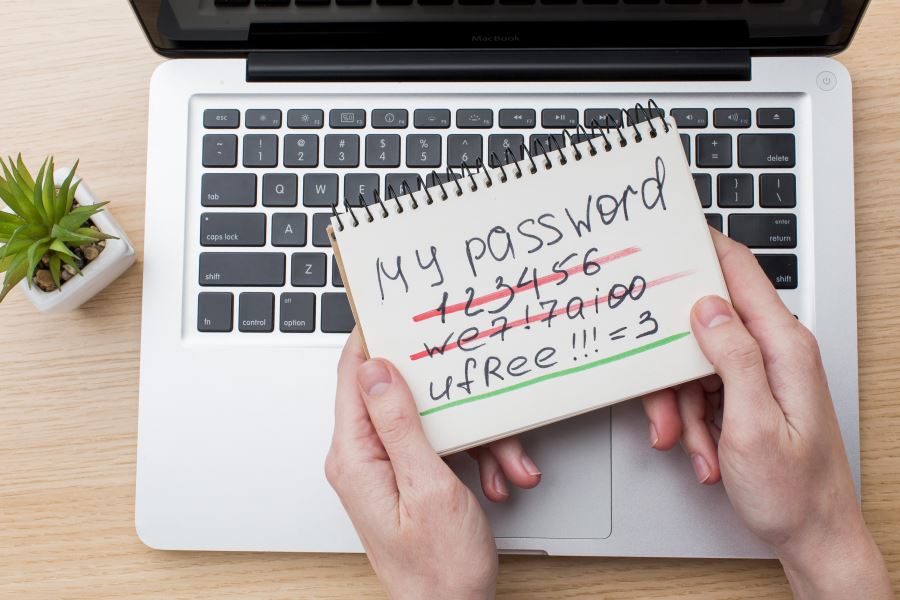 MacBook
esc F1 F2 F3 F4 F5 F6 F7 F8 F11 F12
~ ` ! 1 @ 2 # 3 $ 4 % 5 ^ 6 & + = delete
tab Q W E } ] | \
caps lock A enter return
shift Z shift
fn control alt option
My password
123456
we7!7aioo
ufRee!!!=3